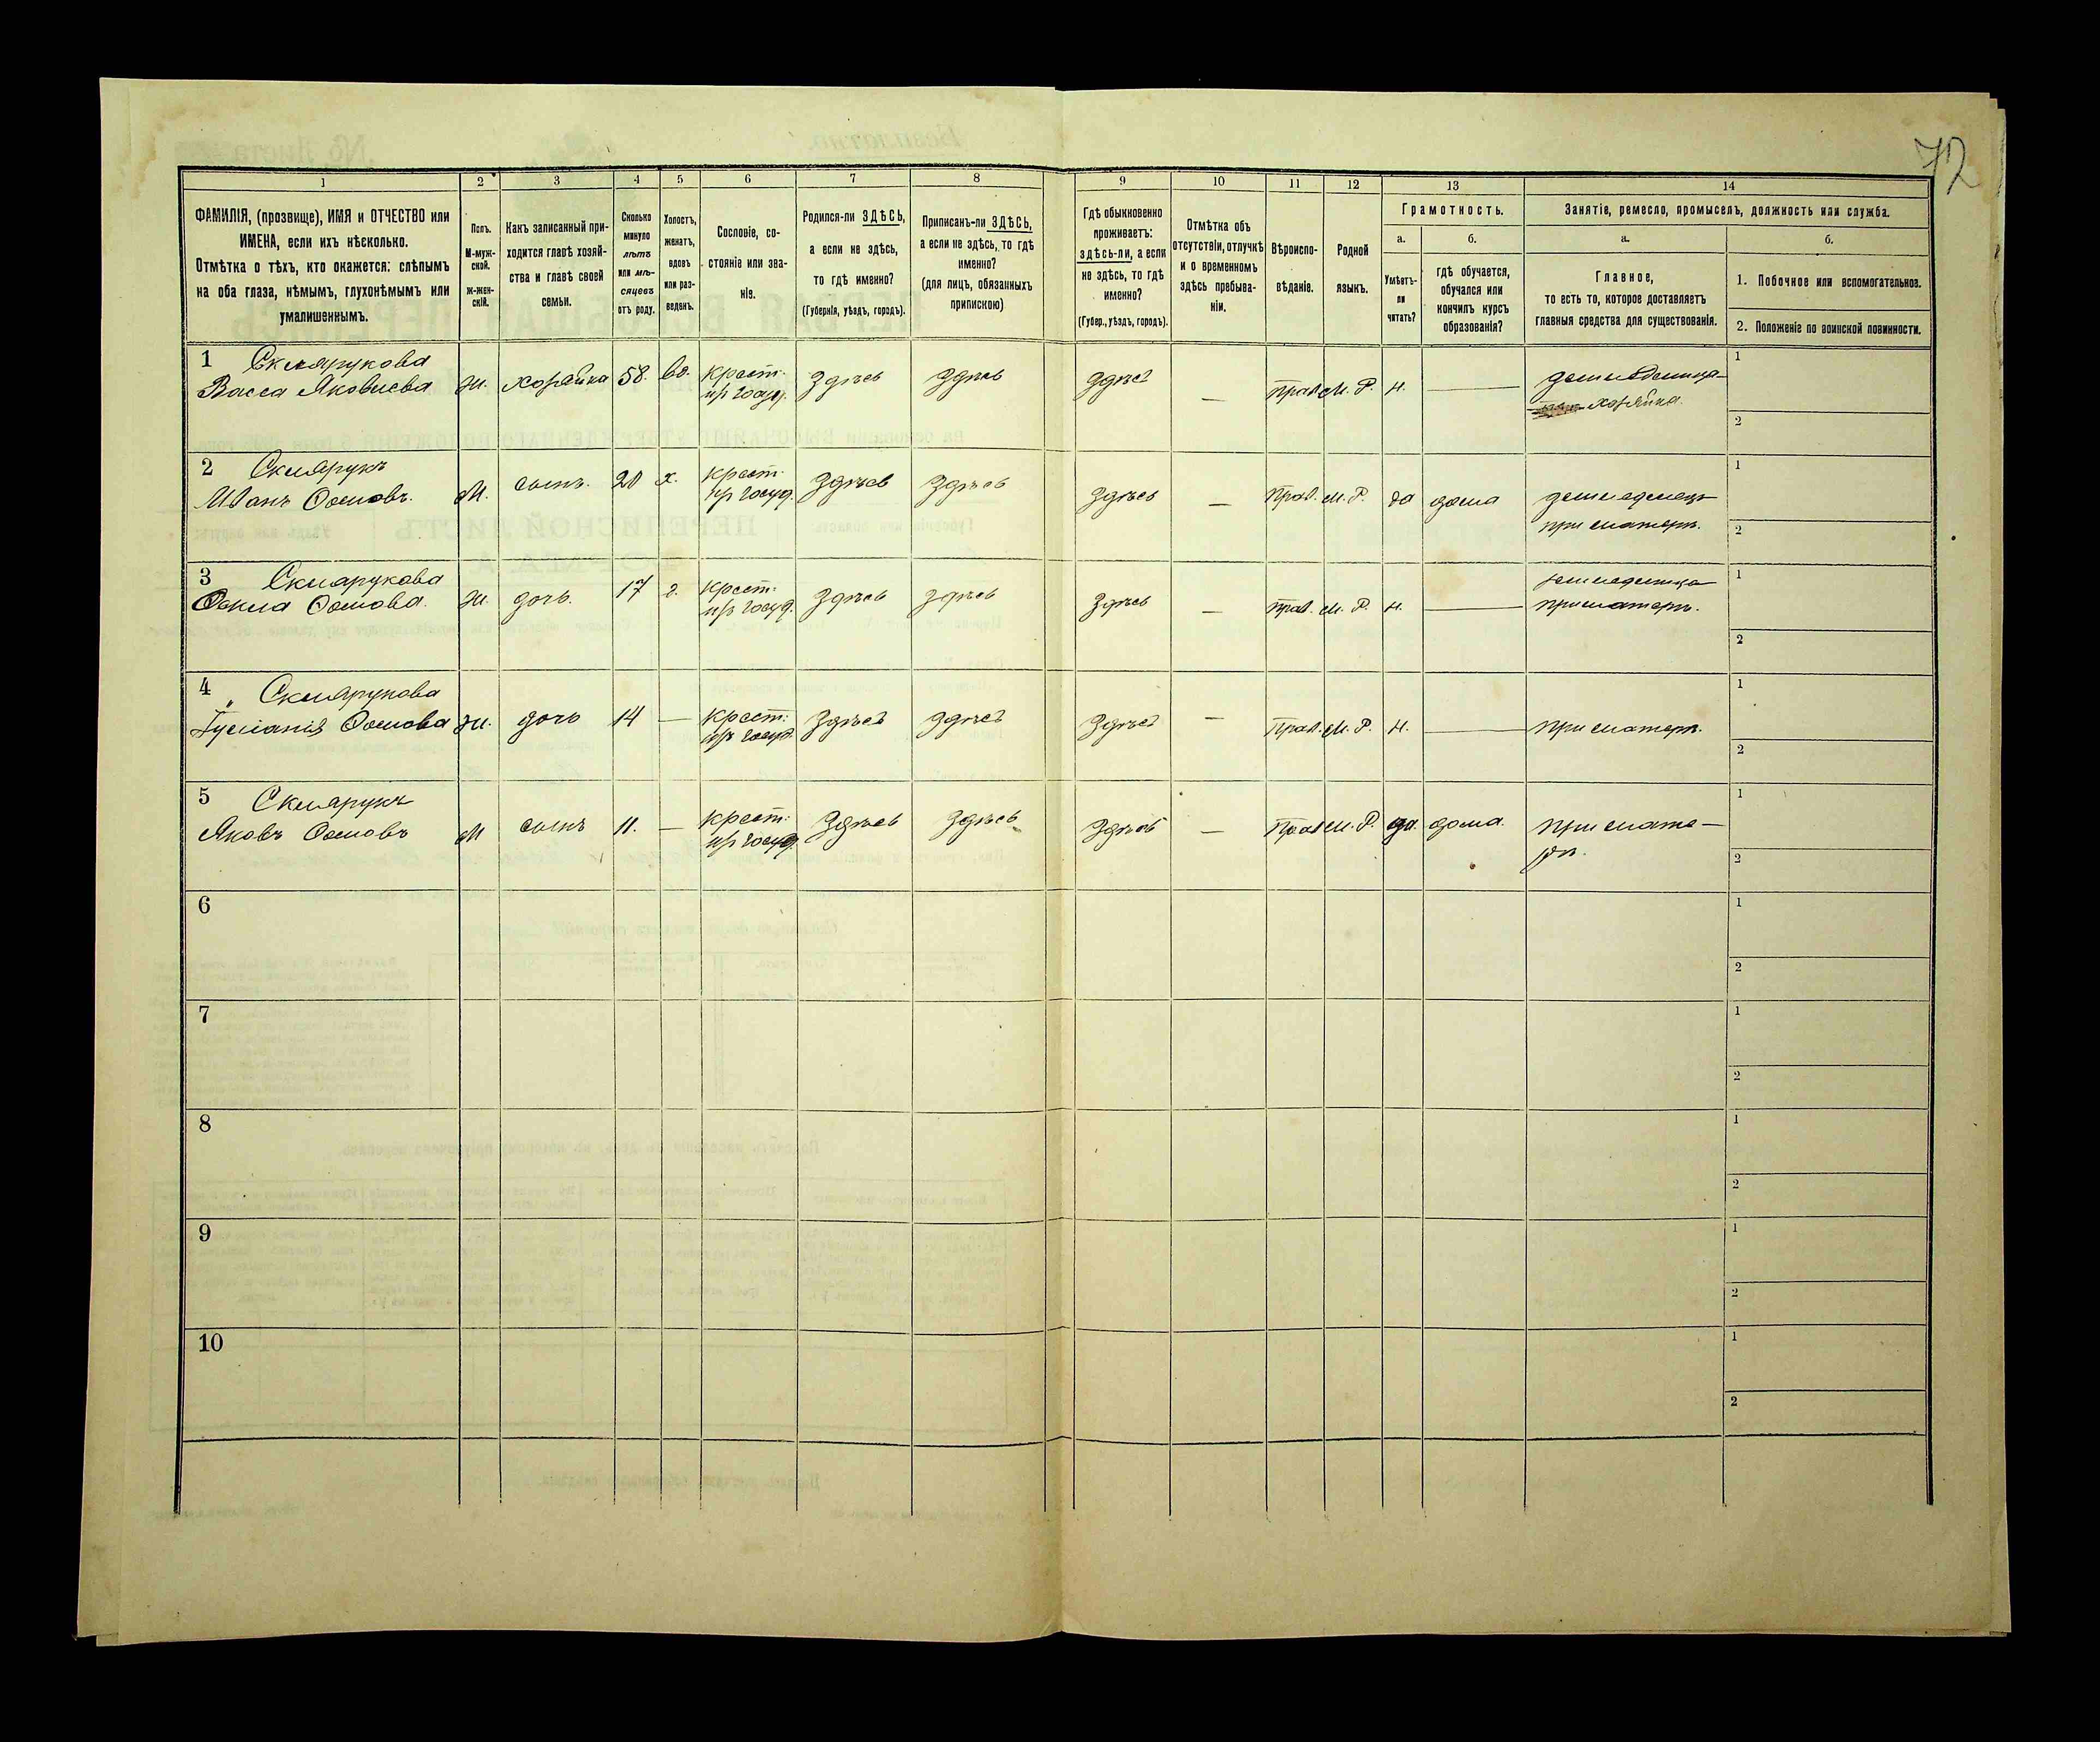 72
1 2 3 4 5 6 7 8 9 10 11 12 13 14
ФАМИЛІЯ, (прозвище), ИМЯ и ОТЧЕСТВО или
ИМЕНА, если ихъ нѣсколько.
Отмѣтка о тѣхъ, кто окажется: слѣпымъ
на оба глаза, нѣмымъ, глухонѣмымъ или
умалишеннымъ.
Полъ.
М-муж-
ской.
ж-жен-
скій.
Какъ записанный при-
ходится главѣ хозяй-
ства и главѣ своей
семьи.
Сколько
минуло
лѣтъ
или мѣ-
сяцевъ
отъ роду.
Холостъ,
женатъ,
вдовъ
или раз-
веденъ.
Сословіе, со-
стояніе или зва-
ніе.
Родился-ли ЗДѢСЬ,
а если не здѣсь,
то гдѣ именно?
(Губернія, уѣздъ, городъ).
Приписанъ-ли ЗДѢСЬ,
а если не здѣсь, то гдѣ
именно?
(для лицъ, обязанныхъ
припискою)
Гдѣ обыкновенно
проживаетъ:
здѣсь-ли, а если
не здѣсь, то гдѣ
именно?
(Губер., уѣздъ, городъ).
Отмѣтка объ
отсутствіи, отлучкѣ
и о временномъ
здѣсь пребыва-
ніи.
Вѣроиспо-
вѣданіе.
Родной
языкъ.
Грамотность.
а.
Умѣетъ-
ли
читать?
б.
гдѣ обучается,
обучался или
кончилъ курсъ
образованія?
Занятіе, ремесло, промыселъ, должность или служба.
а.
Главное,
то есть то, которое доставляетъ
главныя средства для существованія.
б.
1. Побочное или вспомогательное.
2. Положеніе по воинской повинности.
1 Склярукова
Васса Яковлева ж. хозяйка 58. вд. крест. из госуд. здѣсь здѣсь здѣсь — Прав. М. Р. н. — земледелица
хозяйка.
1
2
2 Склярукъ
Иванъ Ѳомовъ. М. сынъ. 20 х. крест. из госуд. здѣсь здѣсь здѣсь — Прав. М. Р. да дома земледелецъ
при матери.
1
2
3 Склярукова
Ѳекла Ѳомова. ж. дочь. 17 крест. из госуд. здѣсь здѣсь здѣсь — Прав. М. Р. н. — земледелица
при матери.
1
2
4 Склярукова
Ѳомова ж. дочь 14 — крест. из госуд. здѣсь здѣсь здѣсь — Прав. М. Р. н. — при матери.
1
2
5 Склярукъ
Яковъ Ѳомовъ М сынъ 11. — крест. из госуд. здѣсь здѣсь здѣсь — Прав. М. Р. да. дома. при мате-
ри.
1
2
6
1
2
7
1
2
8
1
2
9
1
2
10
1
2